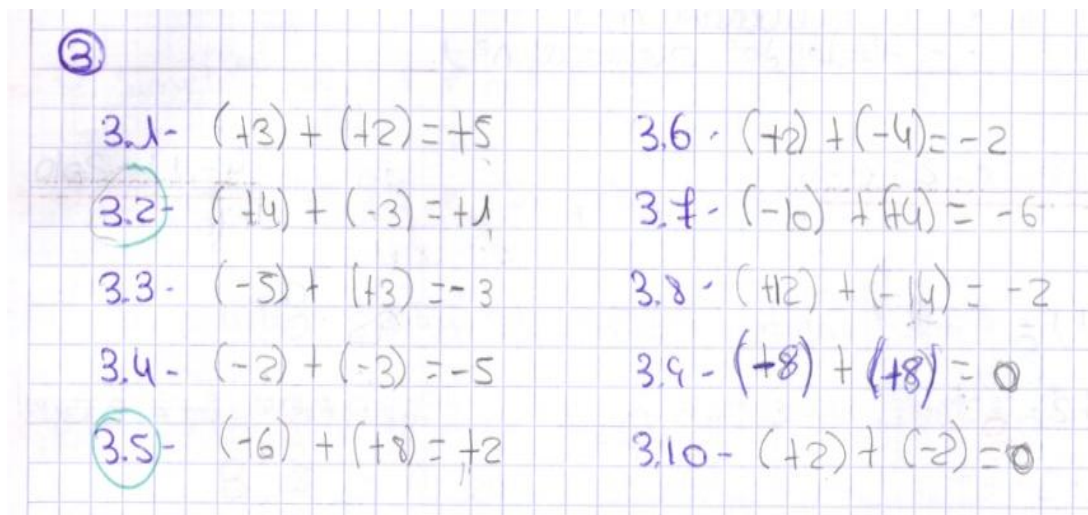 3
3.1- (+3) + (+2) = +5
3.2- (+4) + (-3) = +1
3.3- (-5) + (+3) = -3
3.4- (-2) + (-3) = -5
3.5- (-6) + (+8) = +2
3.6- (+2) + (-4) = -2
3.7- (-10) + (+4) = -6
3.8- (+12) + (-14) = -2
3.9- (+8) + (+8) = 0
3.10- (+2) + (-2) = 0